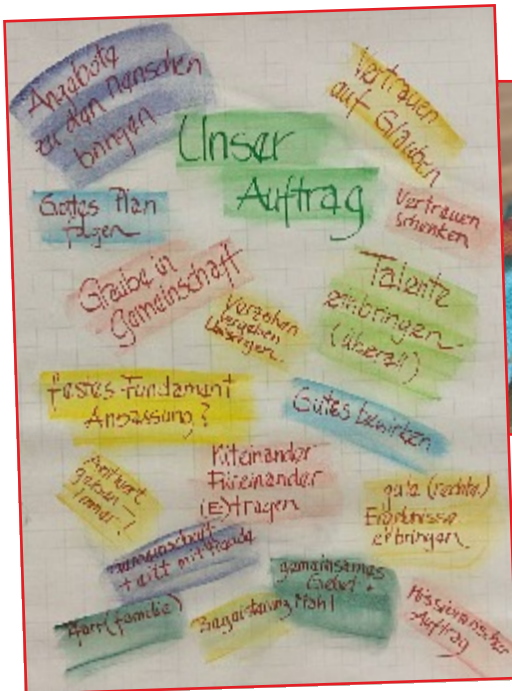 Angebote
zu den Menschen
bringen
Vertrauen
auf Glauben
Unser
Auftrag
Gottes Plan
folgen
Vertrauen
schenken
Glaube in
Gemeinschaft
Talente
einbringen
(überall)
Verzeihen
vergeben
festes Fundament
Anpassung?
Gutes bewirken
Antwort
geben –
immer!
Miteinander
Füreinander
(E)tragen
gute (rechte)
Ergebnisse
erbringen
Gemeinschaft
mit Freude
gemeinsames
Gebet +
Mahl
Pfarr(familie)
Begeisterung
Missionarischer
Auftrag